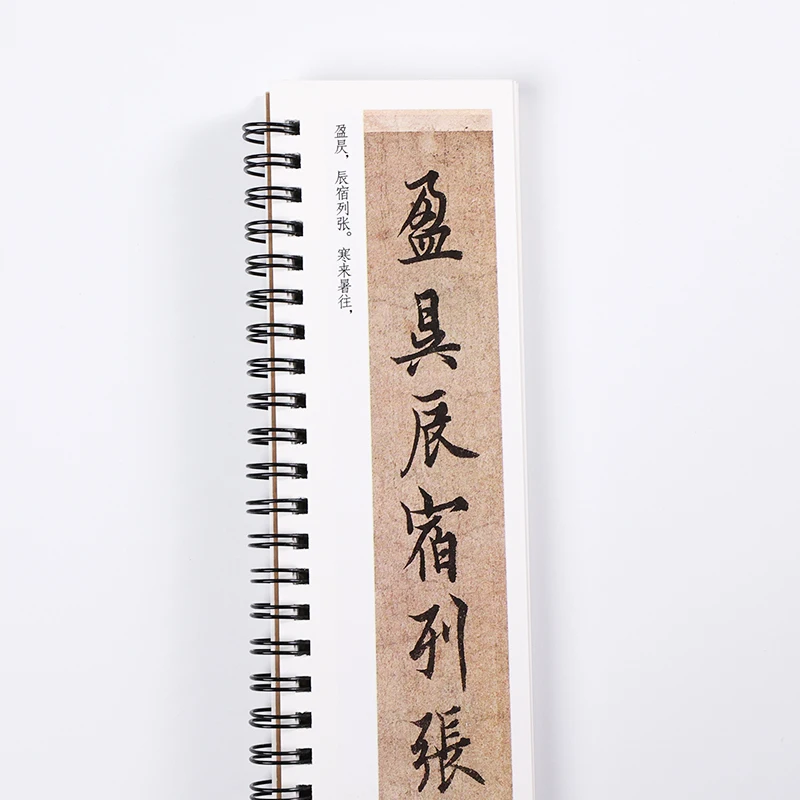 盈昃，辰宿列张。寒来暑往，
盈昃辰宿列張